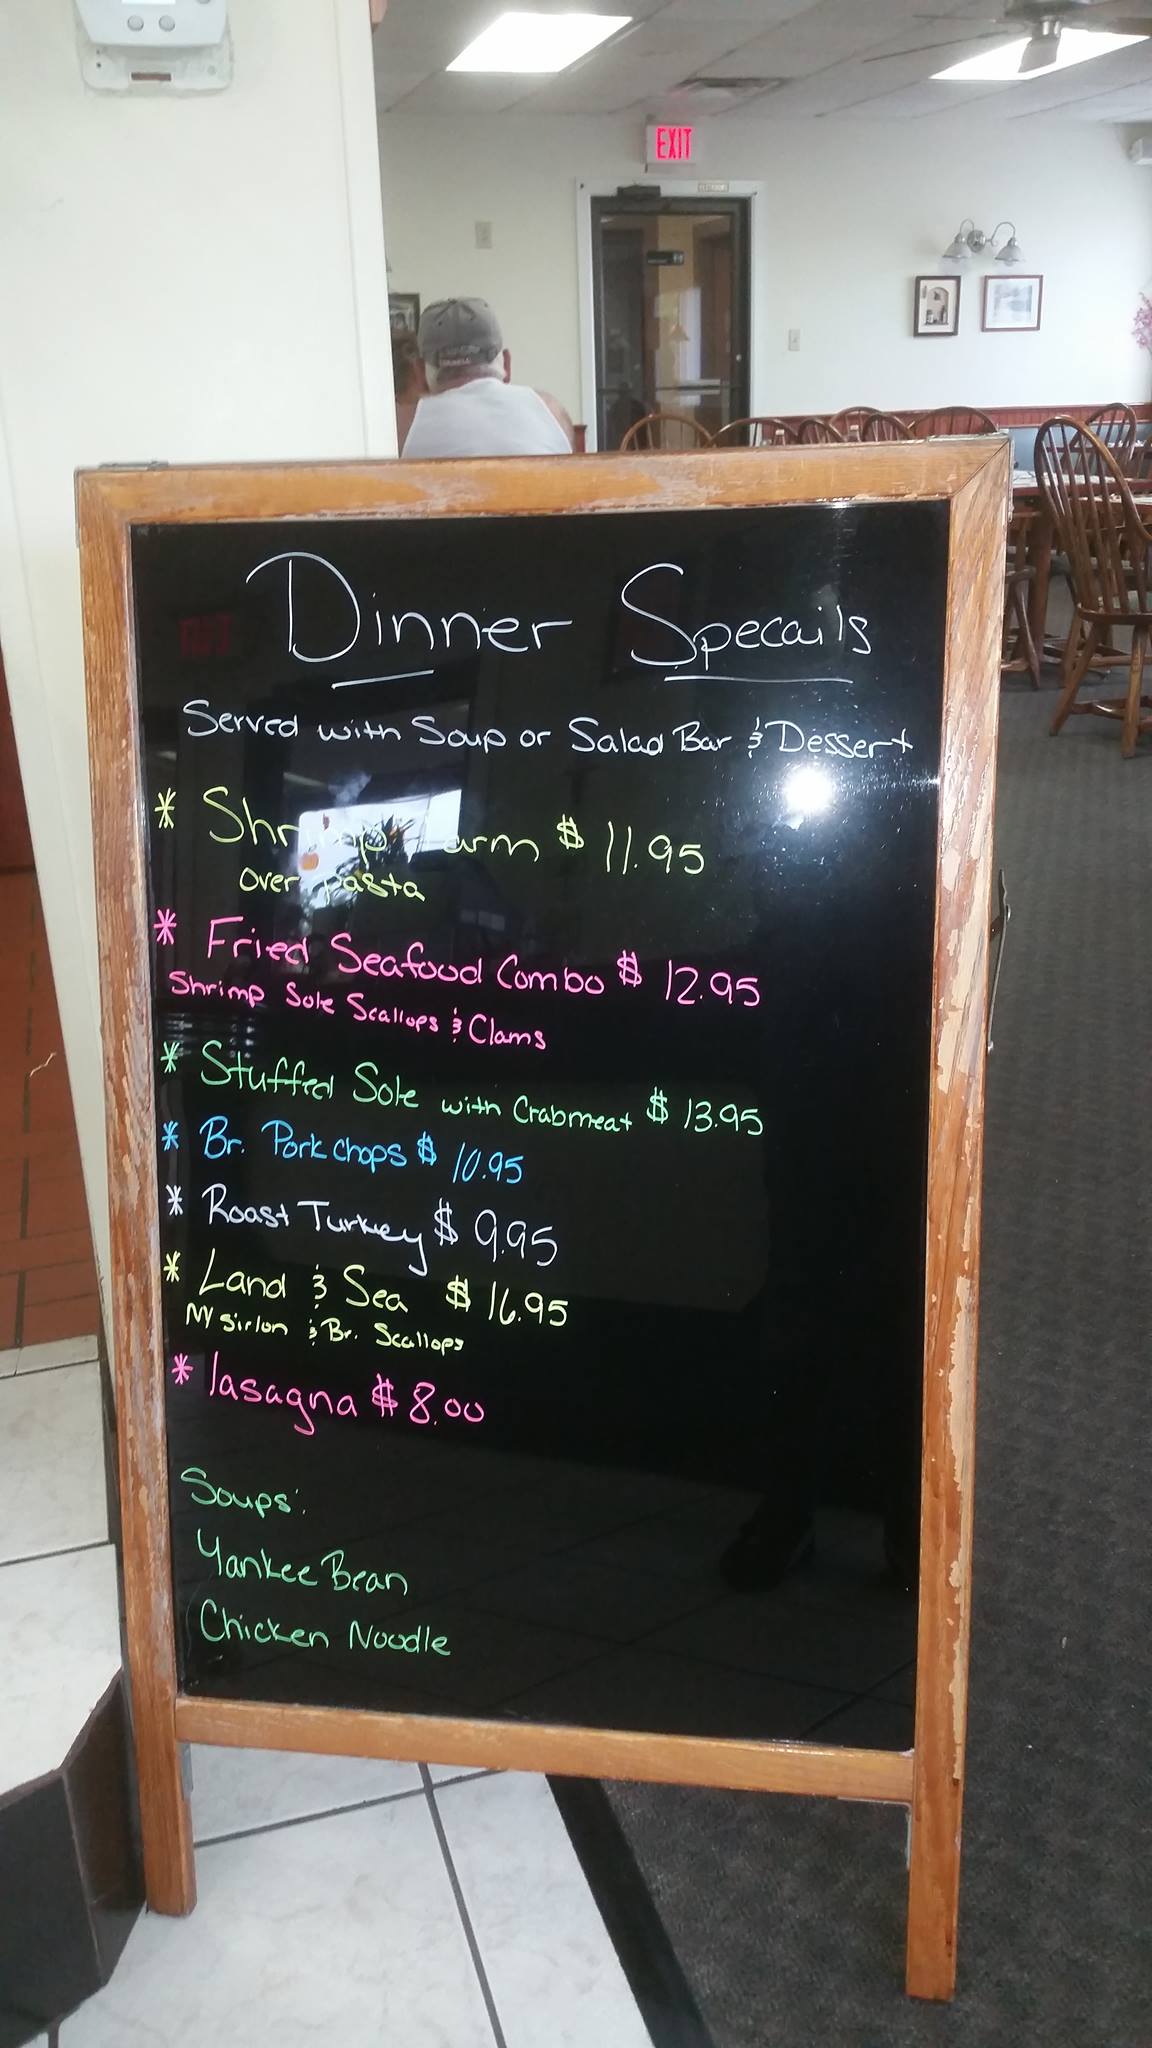 EXIT
Dinner Specails
Served with Soup or Salad Bar & Dessert
* Shrimp $ 11.95
over pasta
* Fried Seafood Combo $ 12.95
Shrimp Sole Scallops & Clams
* Stuffed Sole with Crabmeat $ 13.95
* Br. Pork chops $ 10.95
* Roast Turkey $ 9.95
* Land & Sea $ 16.95
NY Sirlon & Br. Scallops
* lasagna $ 8.00
Soups:
Yankee Bean
Chicken Noodle